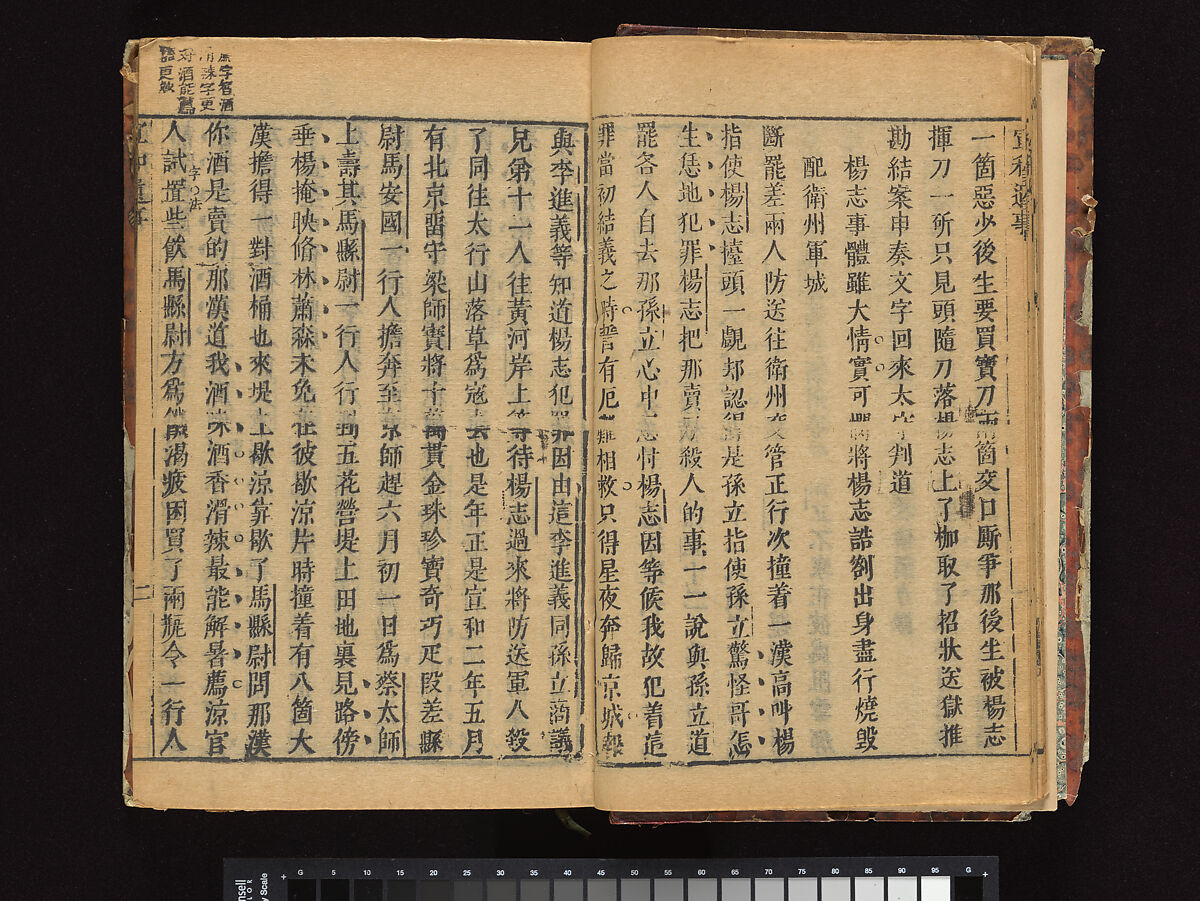 宣和遺事
一箇惡少後生要買寶刀兩箇交口厮爭那後生被楊志
揮刀一斫只見頭隨刀落楊志上了枷取了招狀送獄推
勘結案申奏文字回來太守判道
楊志事體雖大情實可憫將楊志誥劄出身盡行燒毀
配衛州軍城
斷罷差兩人防送往衛州交管正行次撞着一漢高叫楊
指使楊志擡頭一覷却認得是孫立指使孫立驚怪哥怎
生恁地犯罪楊志把那賣刀殺人的事一一說與孫立道
罷各人自去那孫立心中思忖楊志因等候我故犯着這
罪當初結義之時誓有厄難相救只得星夜奔歸京城報
與李進義等知道楊志犯罪因由這李進義同孫立商議
兄弟十一人往黃河岸上等待楊志過來將防送軍人殺
了同往太行山落草爲寇去也是年正是宣和二年五月
有北京畱守梁師寶將十萬貫金珠珍寶奇巧疋段差縣
尉馬安國一行人擔奔至京師趕六月初一日爲蔡太師
上壽其馬縣尉一行人行到五花營堤上田地裏見路傍
垂楊掩映脩林蕭森未免在彼歇涼片時撞着有八箇大
漢擔得一對酒桶也來堤上歇涼靠歇了馬縣尉問那漢
你酒是賣的那漢道我酒味酒香滑辣最能解暑薦涼官
人試置些飲馬縣尉方爲饑渴疲困買了兩瓶令一行人
宣和遺事
二
字智酒
辣字更
好酒能
更
字
法